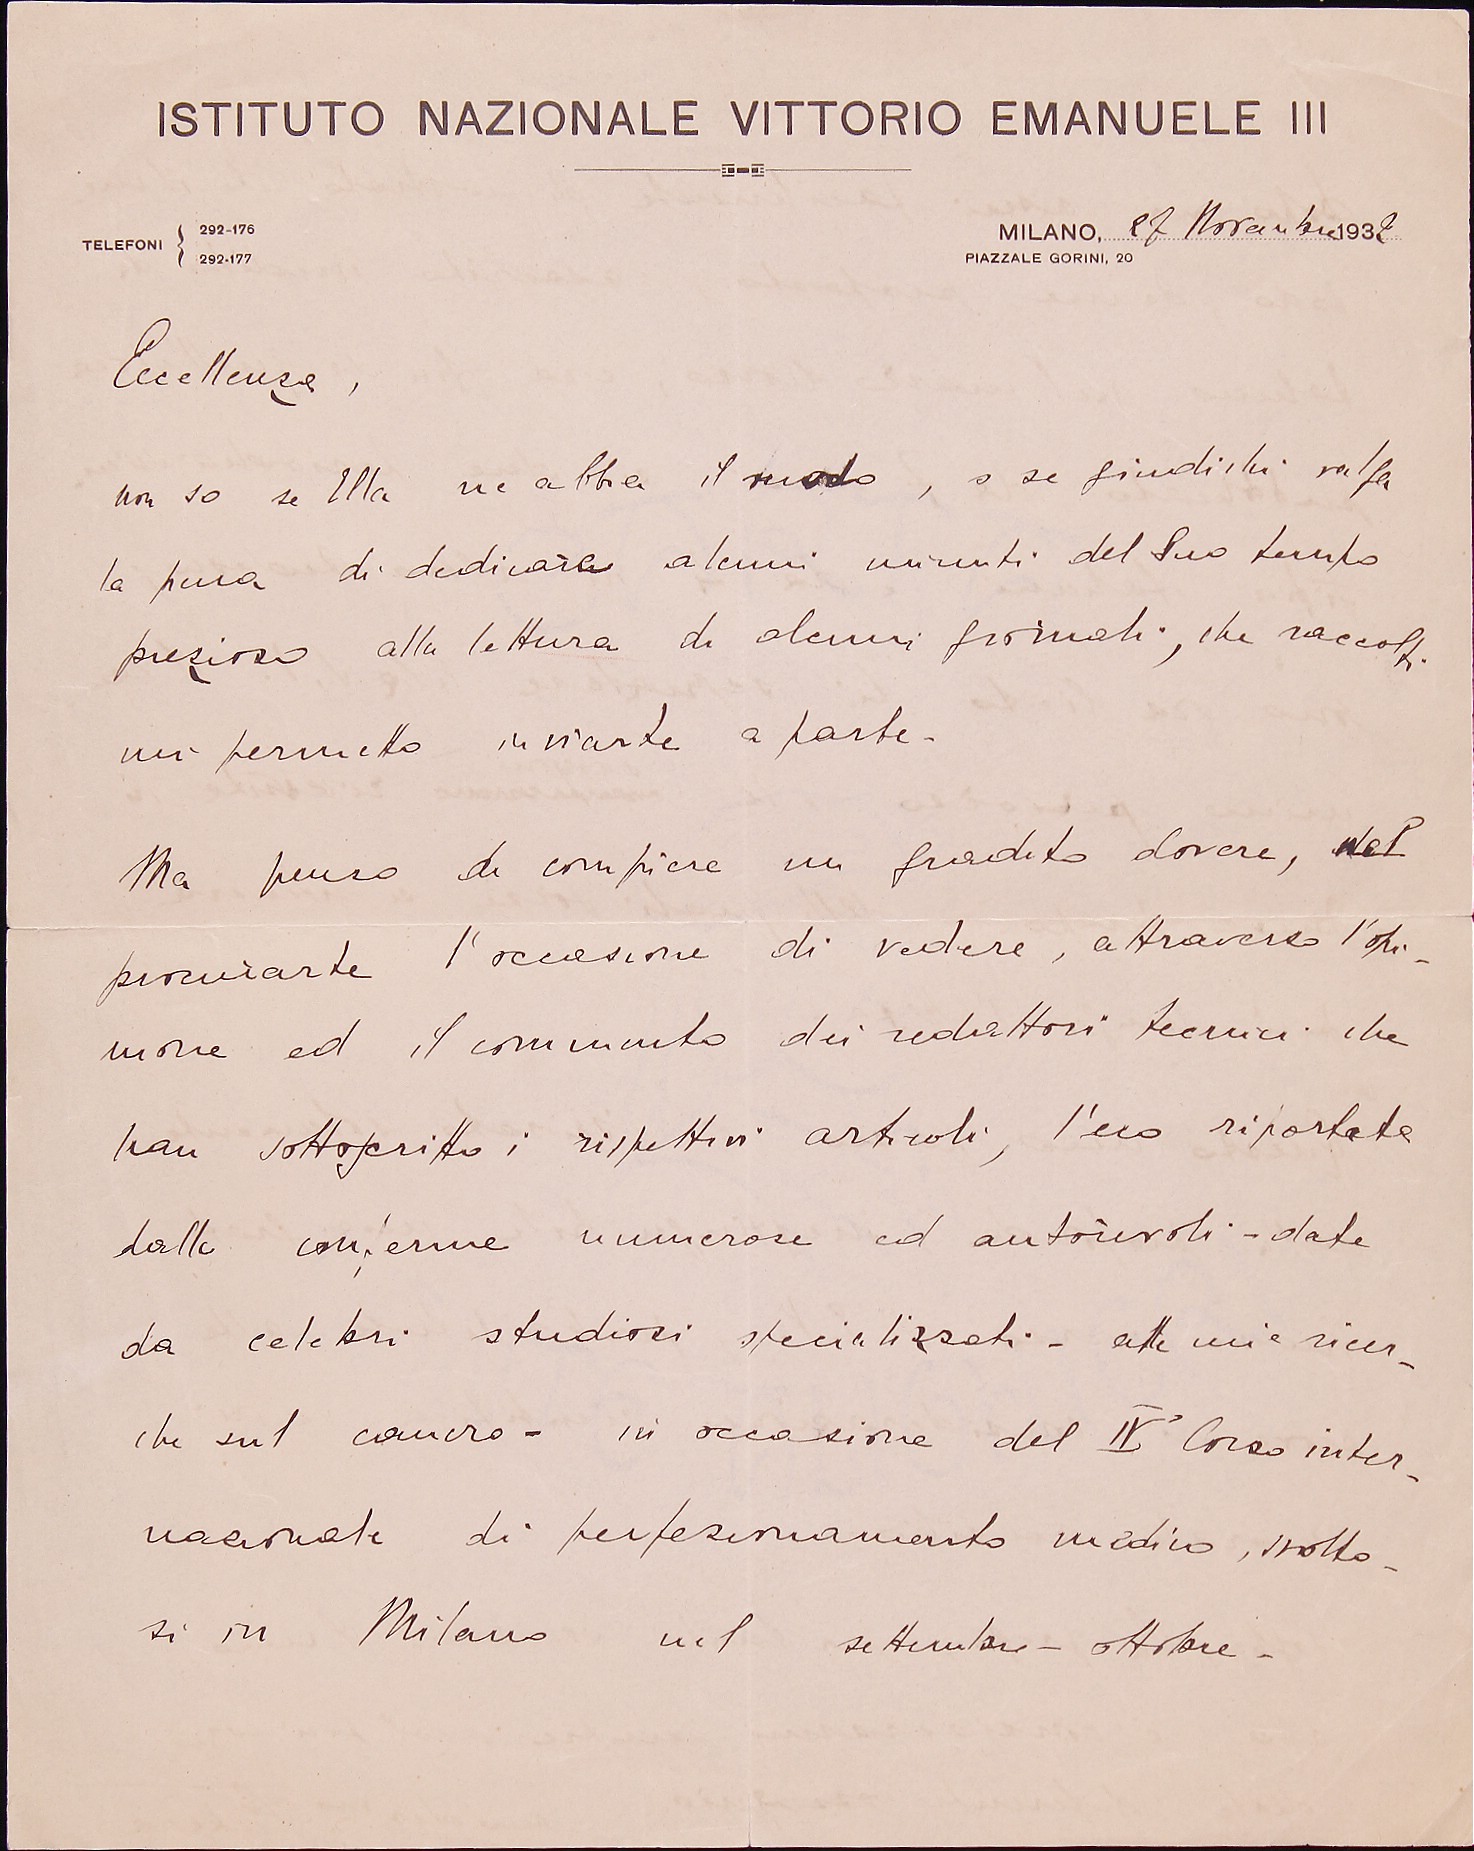 ISTITUTO NAZIONALE VITTORIO EMANUELE III
TELEFONI { 292-176
292-177
MILANO, 27 Novembre 1932
PIAZZALE GORINI, 20
Eccellenza,
non so se Ella ne abbia il modo, o se giudichi valga
la pena di dedicare alcuni minuti del Suo tempo
prezioso alla lettura di alcuni giornali, che raccolti
mi permetto inviarle a parte.
Ma penso di compiere un gradito dovere, nel
procurarle l'occasione di vedere, attraverso l'opi-
nione ed il commento dei redattori tecnici che
han sottoscritto i rispettivi articoli, l'eco riportata
dalle conferme numerose ed autorevoli - date
da celebri studiosi specializzati - alle mie ricer-
che sul cancro - in occasione del IV° Corso inter-
nazionale di perfezionamento medico, svolto-
si in Milano nel settembre - ottobre -